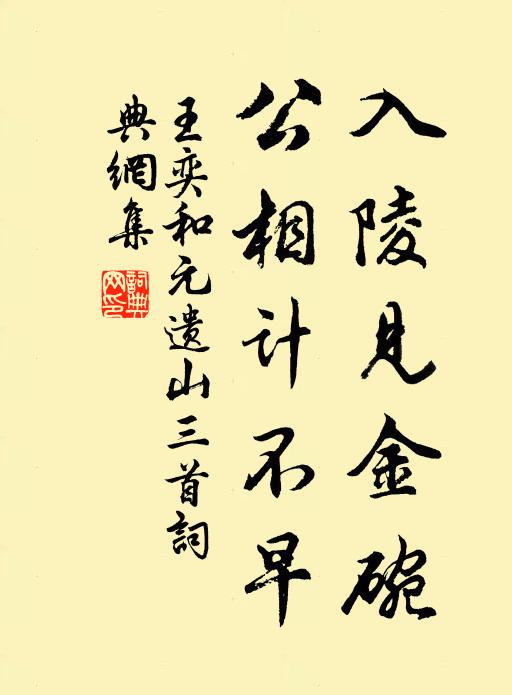 入陵見金碗
公相計不早
王奕和元遺山三首詞
典網集
詞典
网印